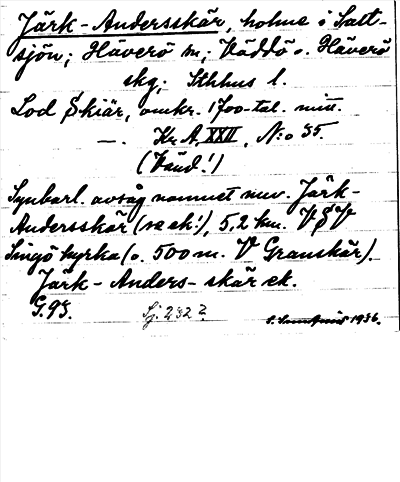 Järk-Andersskär, holme i Salt-
sjön; Häverö sn; Väddö o. Häverö
skg; Sthlms l.
Lod Skiär, omkr. 1700-tal. mitt.
—. Kr. A. XXII, N:o 35.
(Vänd!)
Synbarl. avsåg namnet nuv. Järk-
Andersskär (se ek!), 5,2 km. VSV
Singö kyrka (o. 500 m. V Granskär).
Järk-Anders-skär ek.
G. 98. Sj. 232 ?
1936.